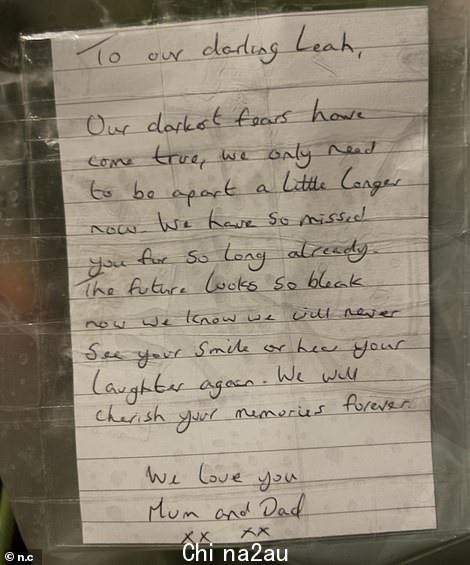 To our darling Leah,
Our darkest fears have
come true, we only need
to be apart a little longer
now. We have so missed
you for so long already.
The future looks so bleak
now we know we will never
see your smile or hear your
laughter again. We will
cherish your memories forever
We love you
Mum and Dad
xx xx
© n.c
Chi na2au